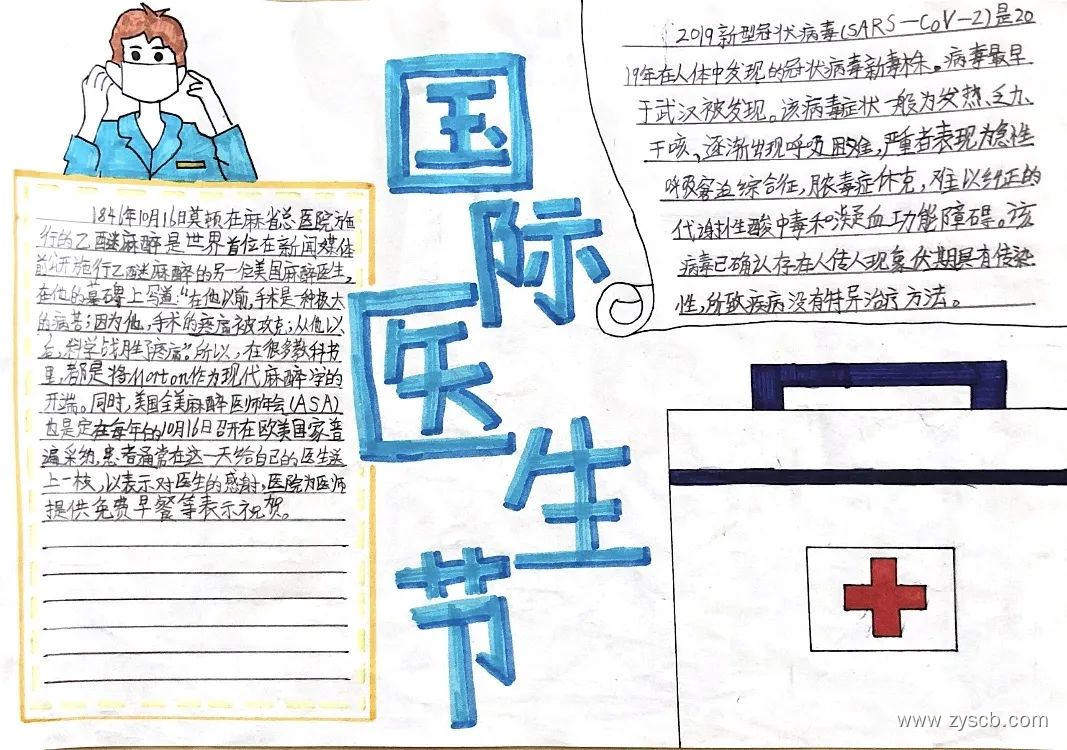 国际医生节
1846年10月16日莫顿在麻省总医院施
行的乙醚麻醉是世界首位在新闻媒体
前公开施行乙醚麻醉的另一位美国麻醉医生,
在他的墓碑上写道:“在他以前,手术是一种极大
的痛苦;因为他,手术的疼痛被攻克;从他以
后,科学战胜了疼痛”。所以,在很多教科书
里,都是将Morton作为现代麻醉学的
开端。同时,美国全美麻醉医师年会(ASA)
也是定在每年的10月16日召开在欧美国家普
遍采纳,患者通常在这一天给自己的医生送
上一枝,以表示对医生的感谢,医院为医师
提供免费早餐等表示祝贺。
2019新型冠状病毒(SARS-CoV-2)是20
19年在人体中发现的冠状病毒新毒株。病毒最早
于武汉被发现。该病毒症状一般为发热、乏力、
干咳、逐渐出现呼吸困难,严重者表现为急性
呼吸窘迫综合征,脓毒症休克,难以纠正的
代谢性酸中毒和凝血功能障碍。该
病毒已确认存在人传人现象伏期具有传染
性,所致疾病没有特异治疗方法。
www.zyscb.com